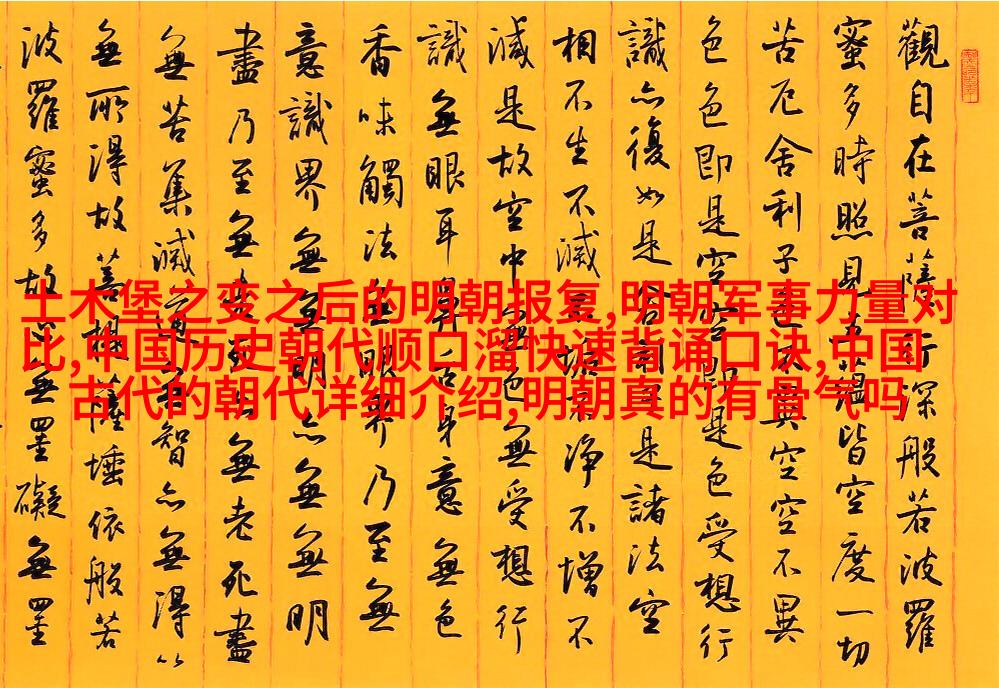 觀自在菩薩行深般若波羅
蜜多時照見五蘊皆空度一切
苦厄舍利子色不異空空不異
色色即是空空即是色受想行
識亦復如是舍利子是諸法空
相不生不滅不垢不淨不增不
滅是故空中無色無受想行
識無眼耳鼻舌身意無色
香味觸法無眼界乃至無
意識界無無明亦無無明
盡乃至無老死亦無老死盡
無苦集滅道無智亦無得以
無所得故菩提薩埵依般若
波羅蜜多故心無罣礙無罣
土木堡之变之后的明朝报复,明朝军事力量对
比,中国历史朝代顺口溜快速背诵口诀,中国
古代的朝代详细介绍,明朝真的有骨气吗